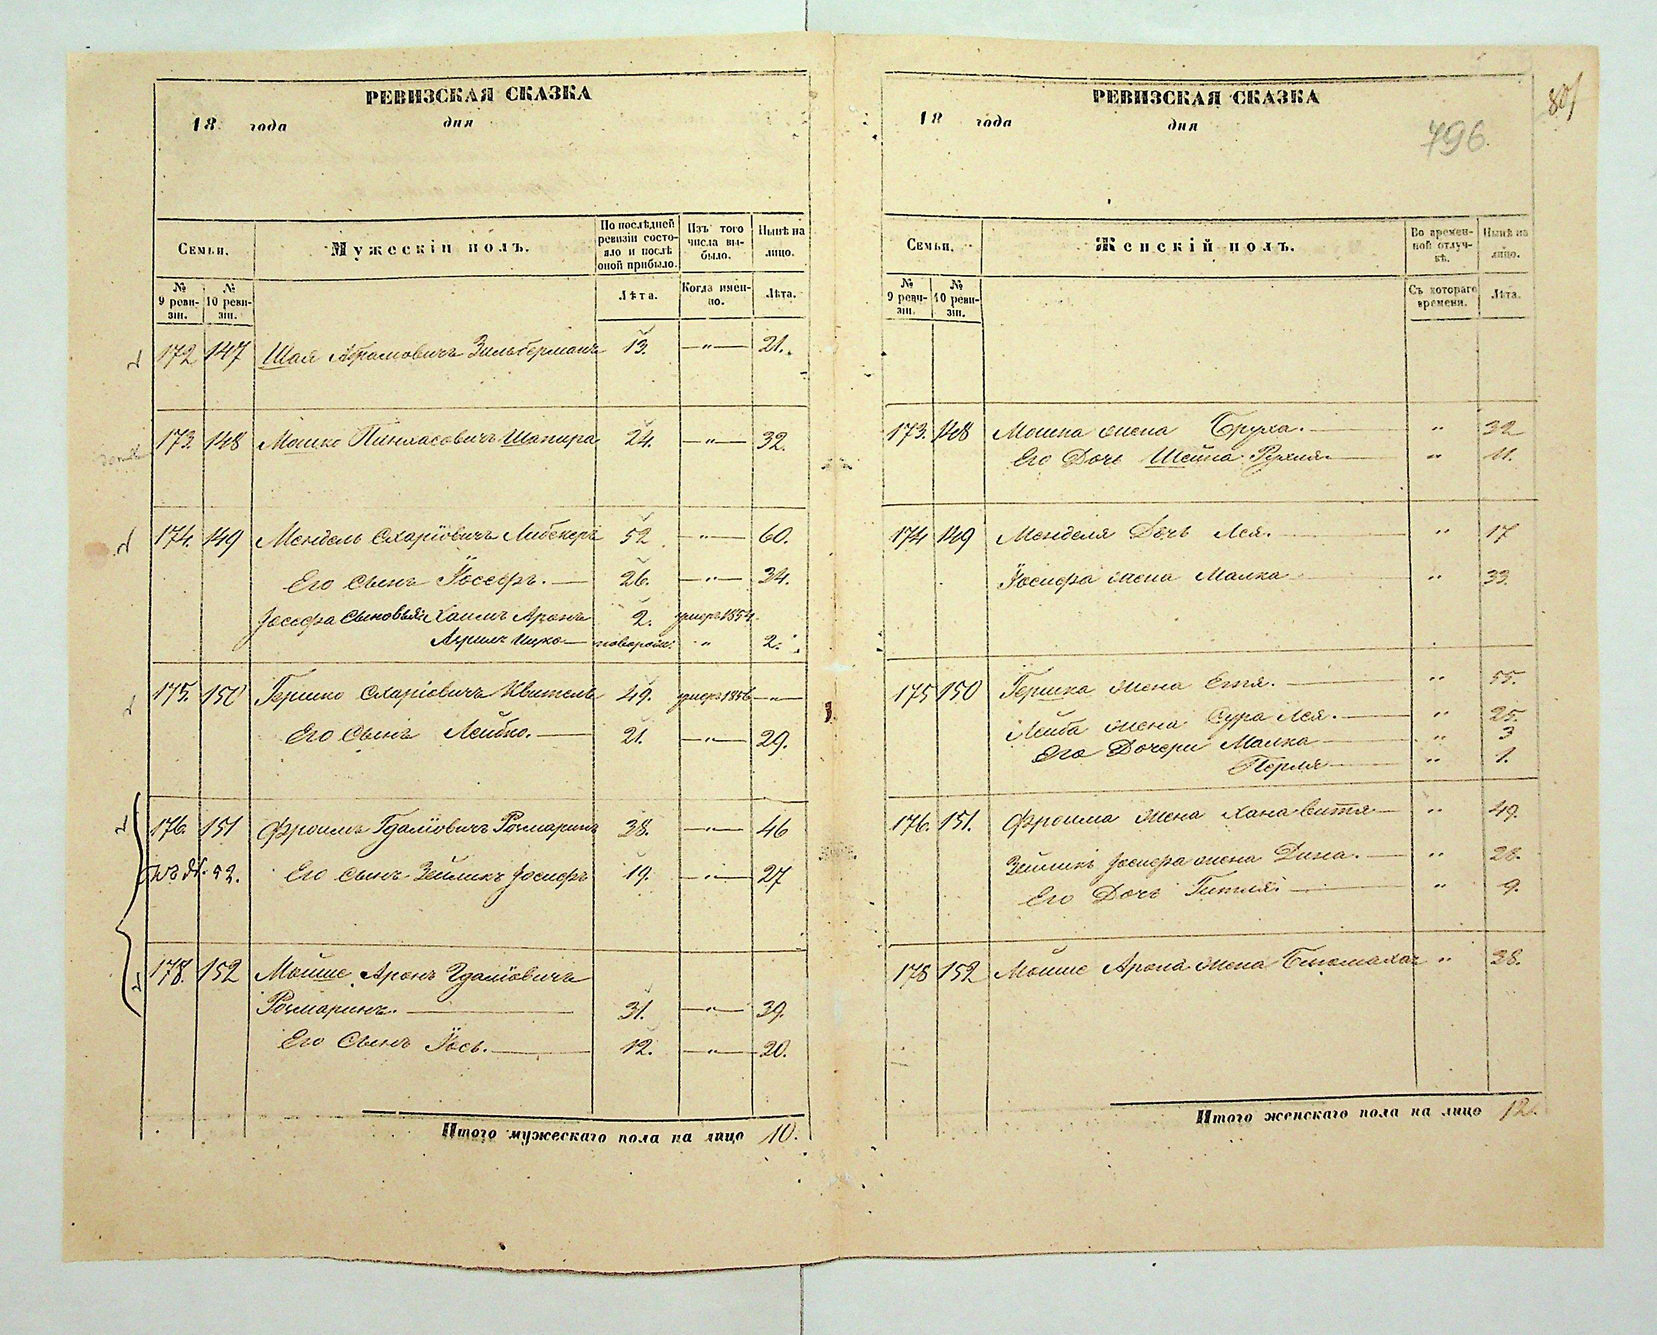 РЕВИЗСКАЯ СКАЗКА
18 года дня
Семьи.
Мужескій полъ.
По послѣдней ревизіи состояло и послѣ оной прибыло.
Изъ того числа выбыло.
Нынѣ на лицо.
№ 9 ревизіи.
№ 10 ревизіи.
Лѣта.
Когда именно.
Лѣта.
172 147 Шая Абрамовичъ Зильберманъ 13. —"— 21.
173. 148 Мошко Пинхасовичъ Шапира 24. —"— 32.
174. 149 Мендель Схаріовичъ 52 —"— 60.
Его Сынъ Йосефъ. — 26. —"— 34.
Йосефа Сыновья: Хаимъ Аронъ 2. умеръ 1854.
Ицко — " 2.
175. 150 Гершко Схаріовичъ Квитель 49. умеръ 1856 —"—
Его Сынъ Лейбко. — 21. —"— 29.
176. 151 Фроимъ Гдаліовичъ Розмаринъ 38. —"— 46
52. Его Сынъ Зейликъ Йосифъ 19. —"— 27
178. 152 Мойше Аронъ Гдаліовичъ
Розмаринъ. — 31. —"— 39.
Его Сынъ Йось. — 12. —"— 20.
Итого мужескаго пола на лицо 10.
РЕВИЗСКАЯ СКАЗКА
18 года дня
796.
Семьи.
Женскій полъ.
Во временной отлучкѣ.
Нынѣ на лицо.
№ 9 ревизіи.
№ 10 ревизіи.
Съ котораго времени.
Лѣта.
173. 148 Мошка жена Бруха. — " 32
Его Дочь Шейна Рухля — " 11.
174 149 Менделя Дочь Лея. — " 17
Йосифа жена Малка — " 33.
175 150 Гершка жена Етя. — " 55.
Лейба жена Сура Лея. — " 25.
Его Дочери Малка — " 3
Перля — " 1.
176. 151. Фроима жена Хана Витя — " 49.
Зейликъ Йосифа жена Дина. — " 28.
Его Дочь Гитля. — " 9.
178 152 Мойше Арона жена " 38.
Итого женскаго пола на лицо 12.